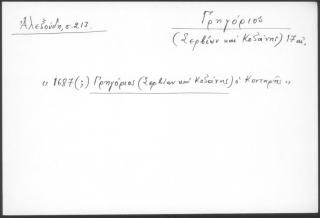 Αλεξούδη, σ. 217.
Γρηγόριος
(Σερβίων καί Κοζάνης) 17 αἰ.
« 1687 (;) Γρηγόριος (Σερβίων καί Κοζάνης) ὁ Κονταρῆς »